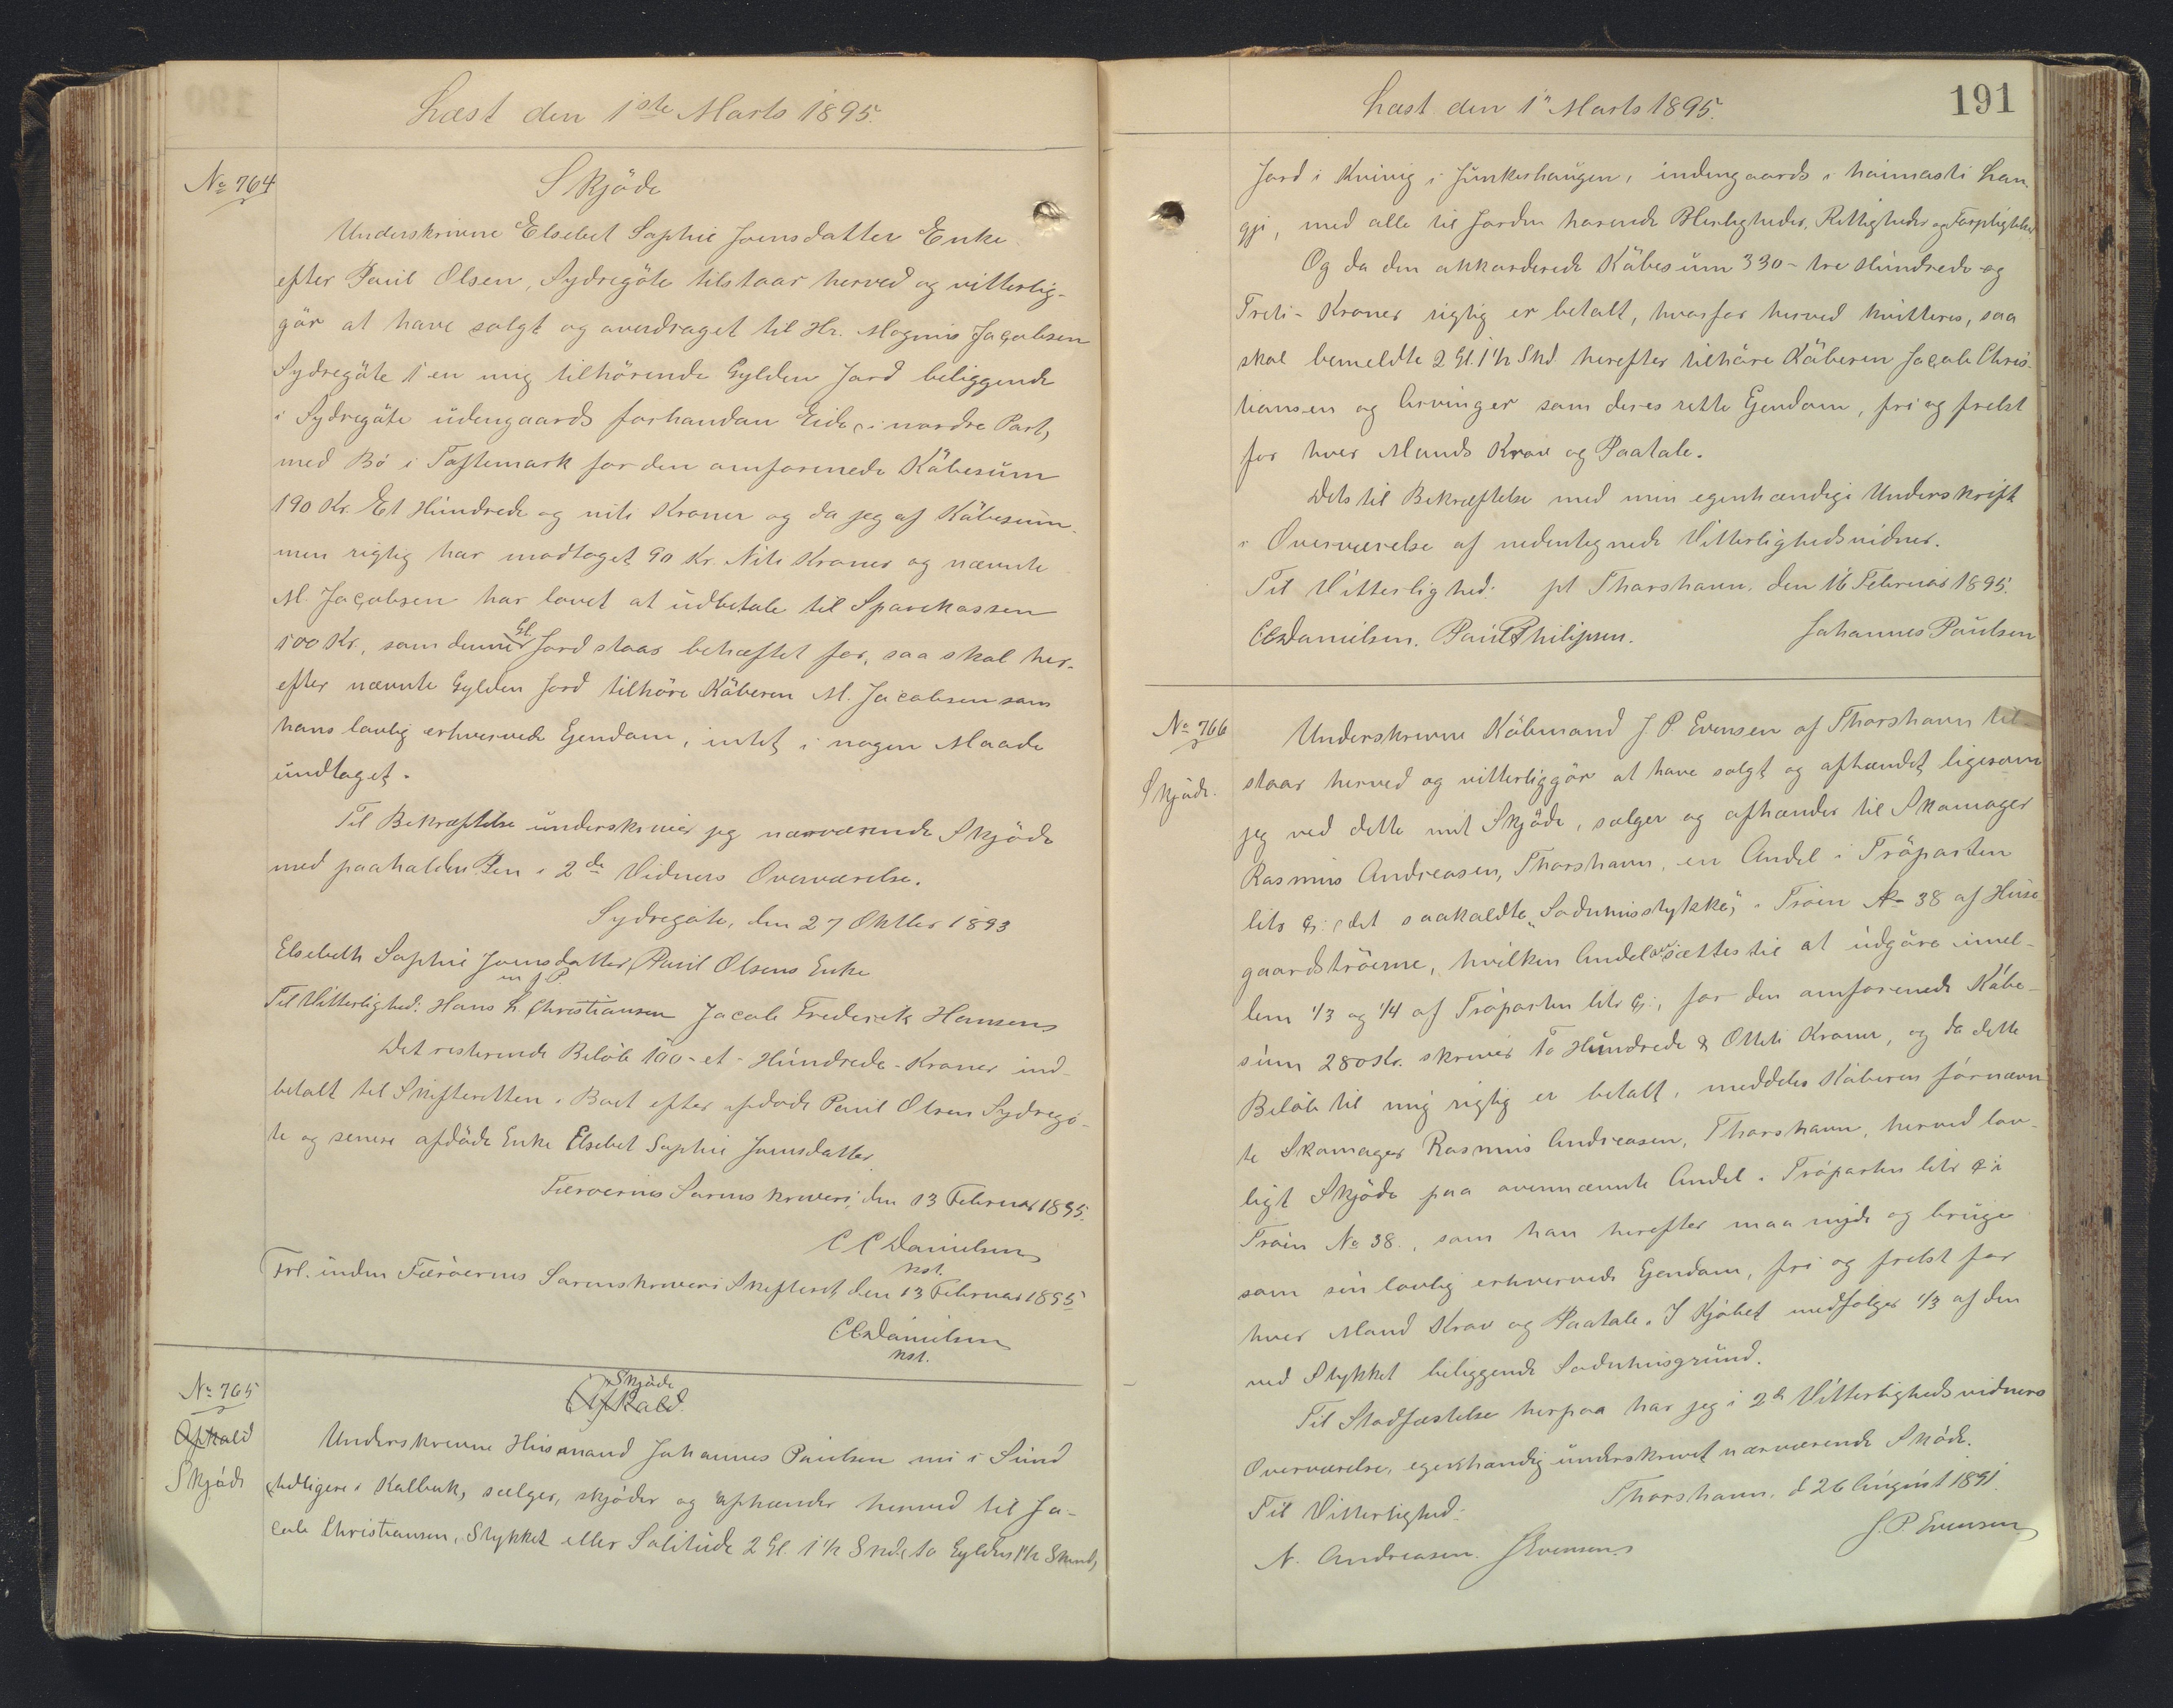 Læst den 1ste Marts 1895.
No 764
Skjöde
Underskrevne Elsebet Sophie Joensdatter Enke
efter Paul Olsen, Sydregöte tilstaar herved og vitterlig-
gör at have solgt og overdraget til Hr. Magnus Jacobsen
Sydregöte 1 en mig tilhörende Gylden Jord beliggende
i Sydregöte udengaards forhandan Eide, i nordre Part,
med Bö i Toftemark for den omforenede Köbesum
190 Kr. Et Hundrede og niti Kroner og da jeg af Köbesum-
men rigtig har modtaget 90 Kr. Niti Kroner og nævnte
M. Jacobsen har lovet at udbetale til Sparekassen
100 Kr., som denne Gl. Jord staar behæftet for, saa skal her-
efter nævnte Gylden Jord tilhöre Köberen M. Jacobsen som
hans lovlig erhvervede Ejendom, intet i nogen Maade
undtaget.
Til Bekræftelse underskriver jeg nærværende Skjöde
med paaholden Pen i 2de Vidners Overværelse.
Sydregöte, den 27 Oktber 1893
Elsebeth Sophie Joensdatter, Paul Olsens Enke
m f P.
Til Vitterlighed: Hans L. Christiansen Jacob Frederik Hansen
Det resterende Belöb 100 - et - Hundrede - Kroner ind-
betalt til Skifteretten i Boet efter afdöde Paul Olsen Sydregö-
te og senere afdöde Enke Elsebet Sophie Joensdatter.
Færöernes Sorenskriveri, den 13 Februar 1895.
C C Danielsen
kst.
Frl. inden Færöernes Sorenskriveri Skifteret, den 13 Februar 1895
CCDanielsen
kst.
No 765
Afkald
Skjöde
Skjöde
Afkald.
Underskrevne Husmand Johannes Paulsen nu i Sund
tidligere i Kalbak, sælger, skjöder og afhænder herved til Ja-
cob Christiansen, Stykket eller Solitude 2 Gl. 1 1/2 Skd. (to Gylden 1 1/2 Skind)
Læst den 1" Marts 1895.
191
Jord i Kvinig i Junkerhaugen, indengaards i heimasti Lan-
gji, med alle til Jorden hörende Herligheder, Rettigheder og Forpligtelser
Og da den akkorderede Köbesum 330 - tre Hundrede og
Treti - Kroner rigtig er betalt, hvorfor herved kvitteres, saa
skal bemeldte 2 Gl. 1 1/2 Skd herefter tilhöre Köberen Jacob Chris-
tiansen og Arvinger som deres rette Ejendom, fri og frelst
for hver Mands Krav og Paatale.
Dets til Bekræftelse med min egenhændige Underskrift
i Overværelse af nedentegnede Vitterlighedsvidner.
Til Vitterlighed: pt Thorshavn, den 16 Februar 1895.
CCDanielsen. Paul Philipsen. Johannes Paulsen
No 766
Skjöde.
Underskrevne Köbmand J. P. Evensen af Thorshavn til-
staar herved og vitterliggör at have solgt og afhændet ligesom
jeg ved dette mit Skjöde, sælger og afhænder til Skomager
Rasmus Andreasen, Thorshavn, en Andel i Tröparten
litr G: (det saakaldte "Sodnhusstykke", i Tröin No 38 af Huse-
gaardströerne, hvilken Andel ansættes til at udgöre imel-
lem 1/3 og 1/4 af Tröparten litr G:, for den omforenede Köbe-
sum 280 Kr. skriver To Hundrede & Otteti Kroner, og da dette
Belöb til mig rigtig er betalt, meddeles Köberen fornævn-
te Skomager Rasmus Andreasen, Thorshavn, herved lov-
ligt Skjöde paa ovennævnte Andel i Tröparten litr G i
Tröin No 38., som han herefter maa nyde og bruge
som sin lovlig erhvervede Ejendom, fri og frelst for
hver Mand Krav og Paatale. I Kjöbet medfölger 1/3 af den
ved Stykket beliggende Sodnhusgrund.
Til Stadfæstelse herpaa har jeg i 2de Vitterlighedsvidners
Overværelse, egenhændig underskrevet nærværende Sköde.
Thorshavn, d 26 August 1891.
Til Vitterlighed:
J. P. Evensen
N. Andreasen. JEvensen